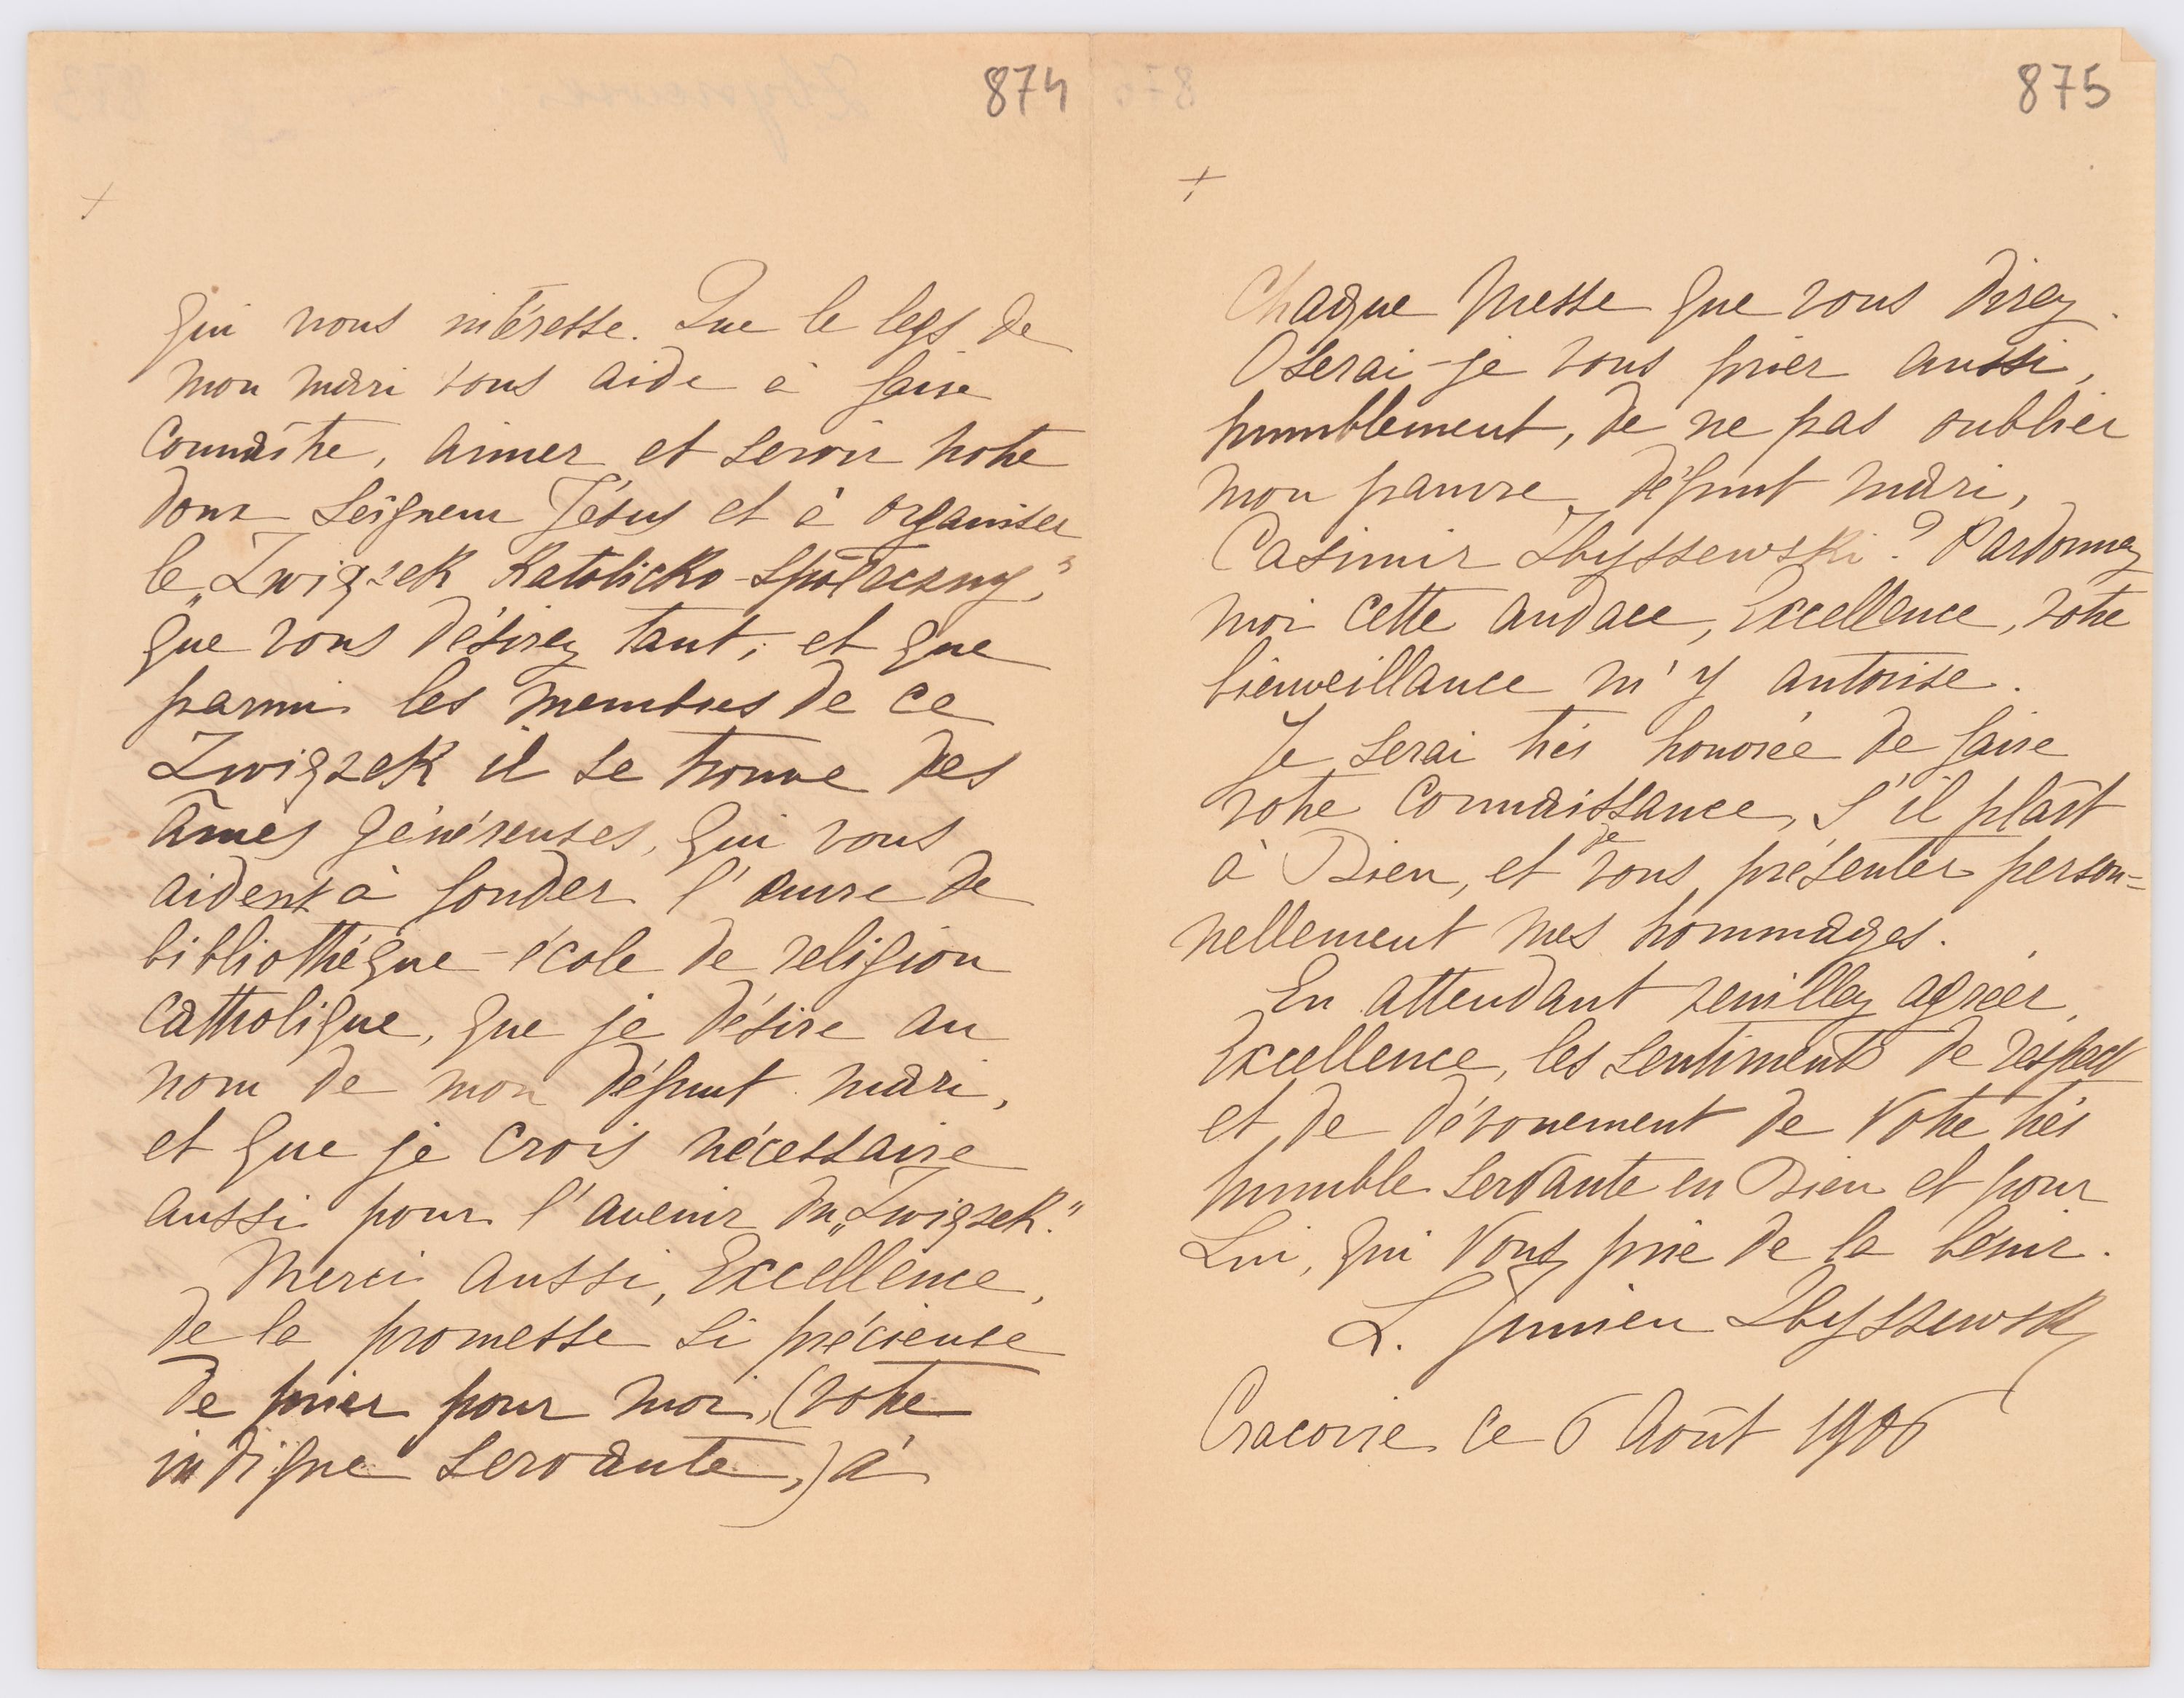 874
+
qui vous intéresse. Que le legs de
mon mari vous aide à faire
connaître, aimer et servir notre
doux Seigneur Jésus et à organiser
le „Związek Katolicko-społeczny,"
que vous désirez tant, et que
parmi les membres de ce
Związek il se trouve des
âmes généreuses, qui vous
aident à fonder l'œuvre de
bibliothéque-école de religion
catholique, que je désire au
nom de mon défunt mari,
et que je crois nécessaire
aussi pour l'avenir du „Związek."
Merci aussi, Excellence,
de la promesse si précieuse
de prier pour moi, (votre
indigne servante,) à
875
+
Chaque Messe que vous direz.
Oserai-je vous prier aussi,
humblement, de ne pas oublier
mon pauvre défunt mari,
Casimir Zbyszewski? Pardonnez
moi cette audace, Excellence, votre
bienveillance m'y autorise.
Je serai très honorée de faire
votre connaissance, s'il plaît
à Dieu, et de vous présenter person=
nellement mes hommages.
En attendant veuillez agréer,
Excellence, les sentiments de respect
et de dévouement de Votre très
humble servante en Dieu et pour
Lui, qui Vous prie de la bénir.
L. Zbyszewsk
Cracovie ce 6 Août 1906